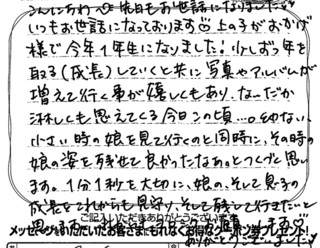 こんにちわ 先日もお世話になりました
いつもお世話になっております 上の子がおかげ
様で今年1年生になりました! 少しずつ年を
取る(成長)していくと共に写真やアルバムが
増えて行く事が嬉しくもあり、なんだか
淋しくも思えてくる今日この頃…
小さい時の娘を見て行くのと同時に、その時の
娘の姿を残せて良かったなぁとつくづく思い
ます。1分1秒を大切に、娘の、そして息子の
成長をこれからも見守り、そして残して行きたいと
ご記入いただきありがとうございます
思い
メッセージをいただいたお客さまにもれなくお得なクーポン券プレゼント!
ありがとうございました